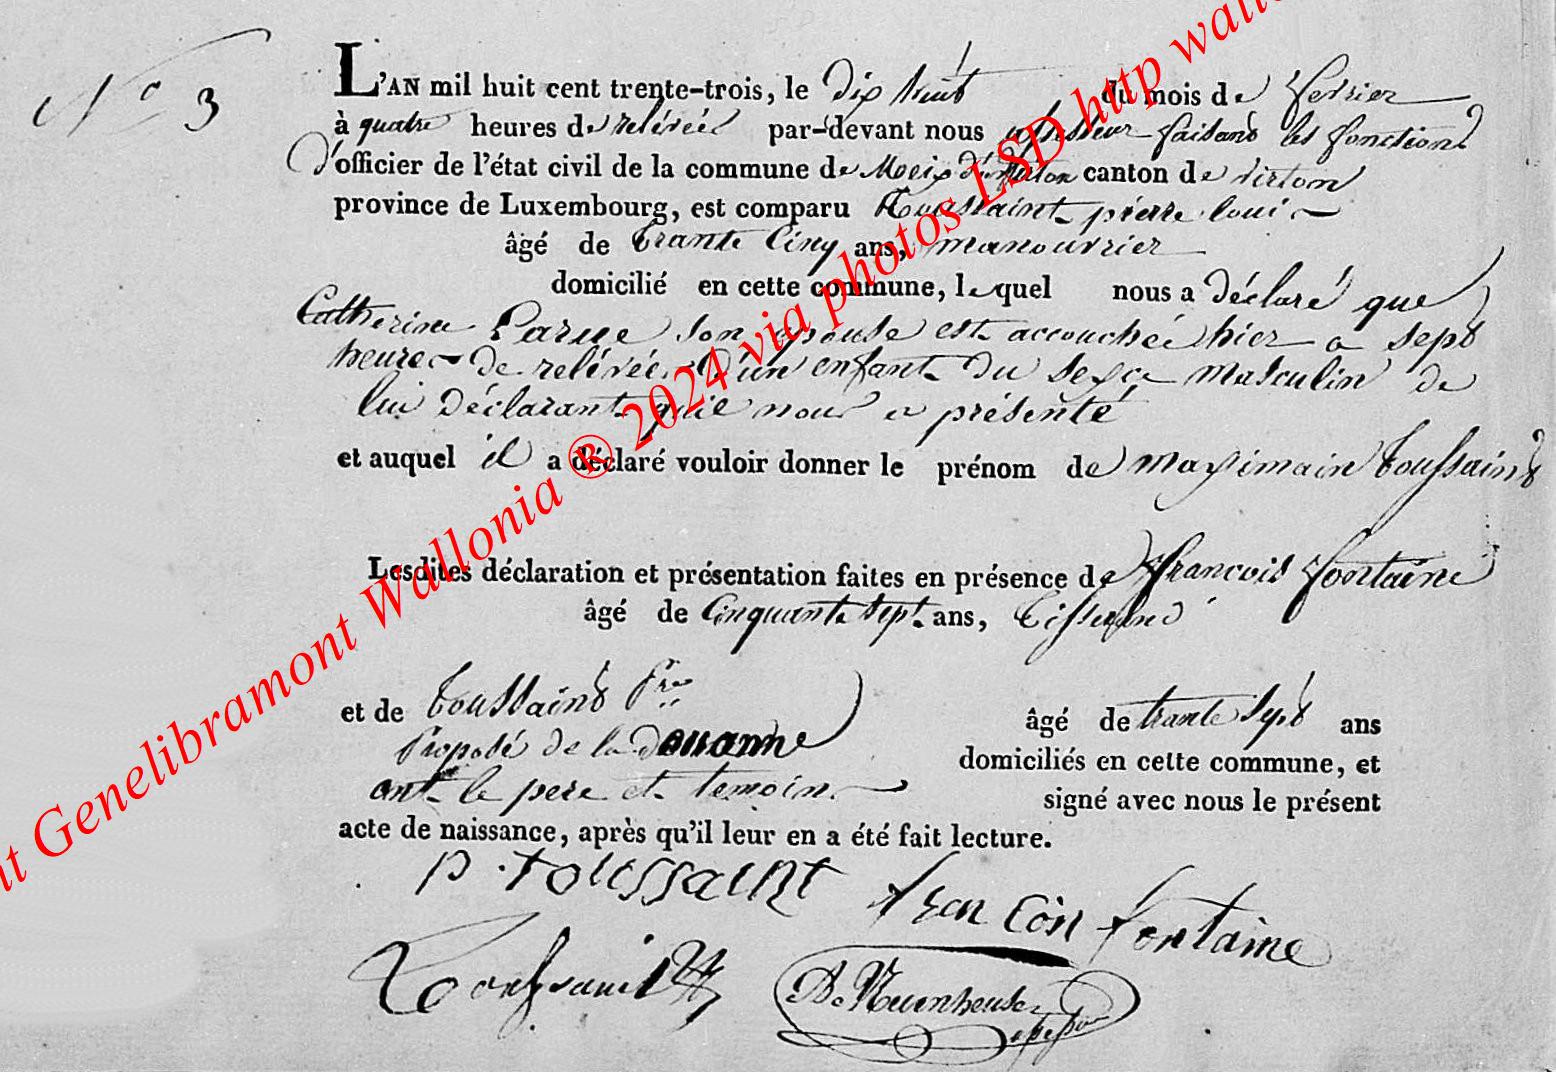 N° 3
L'AN mil huit cent trente-trois, le dix huit du mois de fevrier
à quatre heures de relévée par-devant nous assesseur faisant les fonctions
d'officier de l'état civil de la commune de Meix d'. Virton canton de virton
province de Luxembourg, est comparu Toussaint pierre loui
âgé de trante cinq ans, manouvrier
domicilié en cette commune, lequel nous a déclaré que
Catherine son epouse est accouchée hier a sept
heure de relévée d'un enfant du sexce masculin de
lui déclarant quil nous a présenté
et auquel il a déclaré vouloir donner le prénom de maximain toussaint
Lesdites déclaration et présentation faites en présence de francois fontaine
âgé de Cinquante sept ans, tisserand
et de toussaint Pre âgé de trante sept ans
Proposé de la douanne domiciliés en cette commune, et
ont le pere et temoin signé avec nous le présent
acte de naissance, après qu'il leur en a été fait lecture.
P. toussaint francois fontaine
Toussaint
Genelibramont Wallonia ® 2024 via photos LSD http wallo